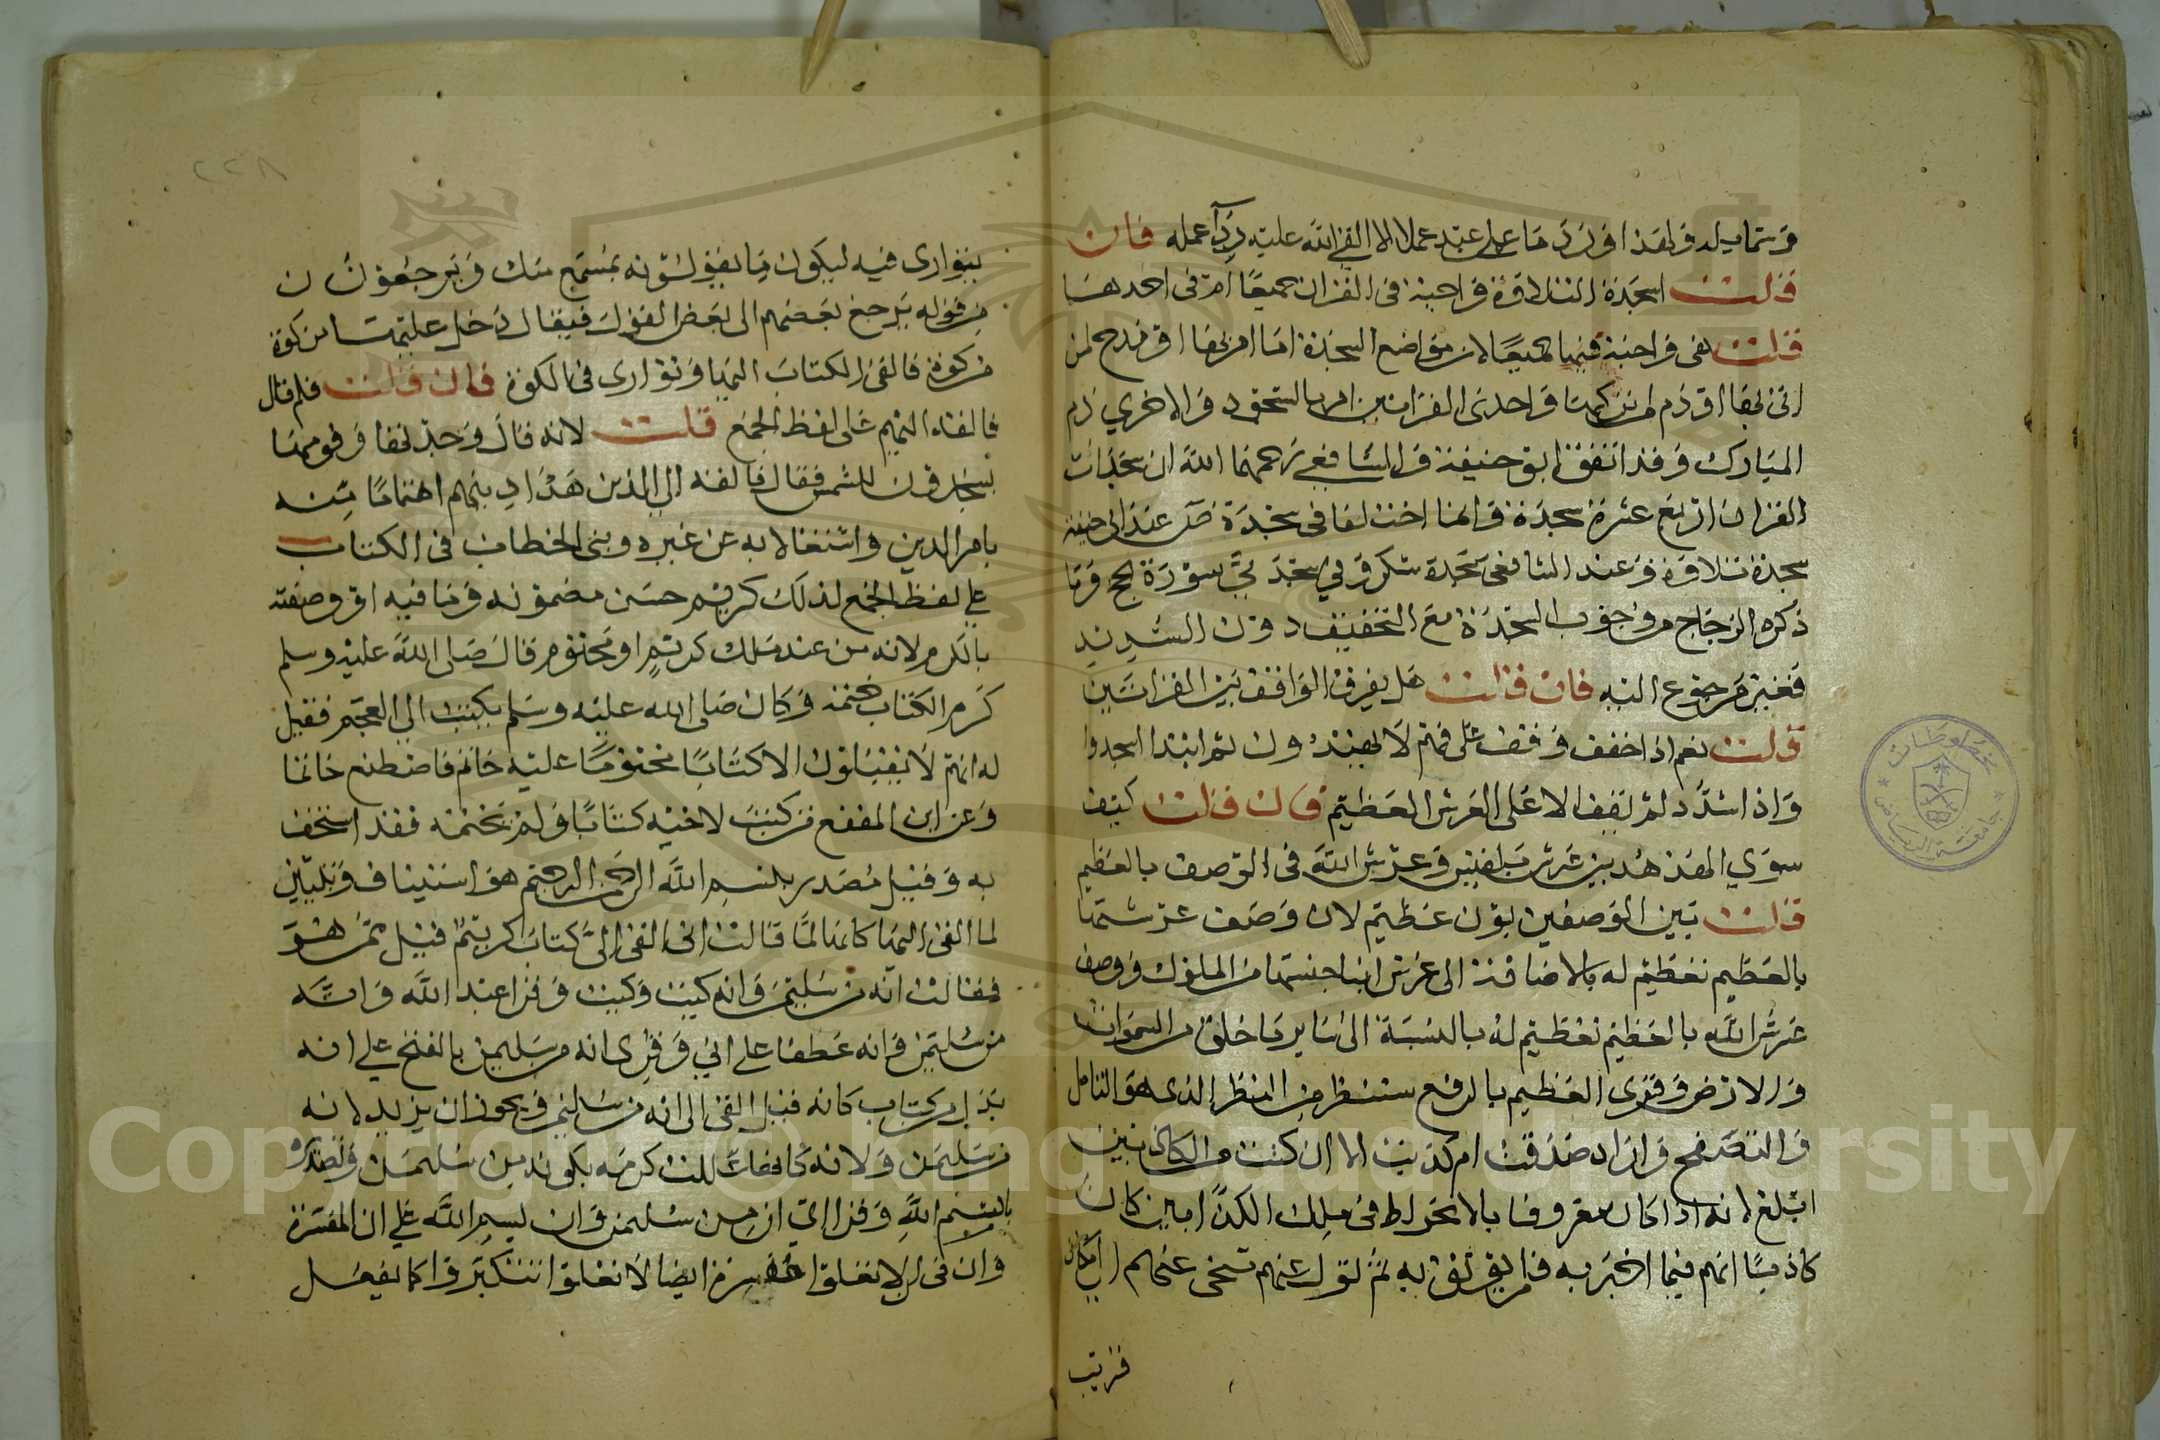 وشمايله ولهذا اورد ما عمل عبد عملا الا القي الله عليه رداء عمله فان
قلت اسجدة التلاوة واجبة في القران جميعا ام في احدهما
قلت هي واجبة فيهما جميعا لان مواضع السجدة اما امر بها او مدح لمن
اتى بها او ذم لمن تركها واحدى القراتين امر بالسجود والاخري ذم
للتارك وقد اتفق ابو حنيفة والشافعي رحمهما الله ان سجدات
القران اربع عشرة سجدة وانما اختلفا في سجدة ص عند ابي حنيفة
سجدة تلاوة وعند الشافعي سجدة شكر وفي سجدتي سورة الحج وما
ذكره الزجاج من وجوب السجدة مع التخفيف دون التشديد
فغير مرجوع اليه فان قلت هل يفرق الواقف بين القراتين
قلت نعم اذا خفف وقف على فهم لا يهتدون ثم ابتدا اسجدوا
واذا شدد لم يقف الا على العرش العظيم فان قلت كيف
سوي الهدهد بين عرش بلقيس وعرش الله في الوصف بالعظيم
قلت بين الوصفين بون عظيم لان وصف عرشها
بالعظيم تعظيم له بالاضافة الى عرش ابنا جنسها من الملوك ووصف
عرش الله بالعظيم تعظيم له بالنسبة الى ساير ما خلق من السموات
والارض وقرى العظيم بالرفع سننظر من النظر الذى هو التامل
والتصفح واراد صدقت ام كذبت الا ان كنت من الكاذبين
ابلغ لانه اذا كان معروفا بالانخراط في سلك الكذابين كان
كاذبا اتهم فيما اخبر به فلم يوثق به ثم تول عنهم تنحى عنهم الي مكان
قريب
٢٢٨
يتوارى فيه ليكون ما يقولونه بمسمع منك ويرجعون
من قوله يرجع بعضهم الى بعض القول فيقال دخل عليها من كوة
من كوة فالقى الكتاب اليها وتوارى في الكوة فان قلت فلم قال
فالقه اليهم على لفظ الجمع قلت لانه قال وجدتها وقومها
يسجدون للشمس فقال فالقه الي الذين هذا دينهم اهتماما منه
بامر الدين واشتغالا به عن غيره وبنى الخطاب في الكتاب
علي لفظ الجمع لذلك كريم حسن مضمونه وما فيه او وصفته
بالكرم لانه من عند ملك كريم او مختوم قال صلى الله عليه وسلم
كرم الكتاب ختمه وكان صلى الله عليه وسلم يكتب الي العجم فقيل
له انهم لا يقبلون الا كتابا مختوما عليه خاتم فاصطنع خاتما
وعن ابن المقفع من كتب لاخيه كتابا ولم يختمه فقد استخف
به وقيل مصدر ببسم الله الرحمن الرحيم هو استيناف وتبيين
لما القى اليها كانها لما قالت اني القى الي كتاب كريم قيل ممن هو
فقالت انه من سليمن وانه كيت وكيت وقرا عبد الله وانه
من سليمن وانه عطفا علي اني وقرى انه من سليمن بالفتح علي انه
بدل من كتاب كانه قيل القى الي انه من سليمن ويجوز ان يريد لانه
من سليمن ولانه كانها عللت كرمه بكونه من سليمن وتصديره
باسم الله وقرا ابي ان من سليمن وان بسم الله علي ان المفسرة
وان في ان لا تعلوا مفسرة ايضا لا تعلوا لا تتكبروا كما يفعل